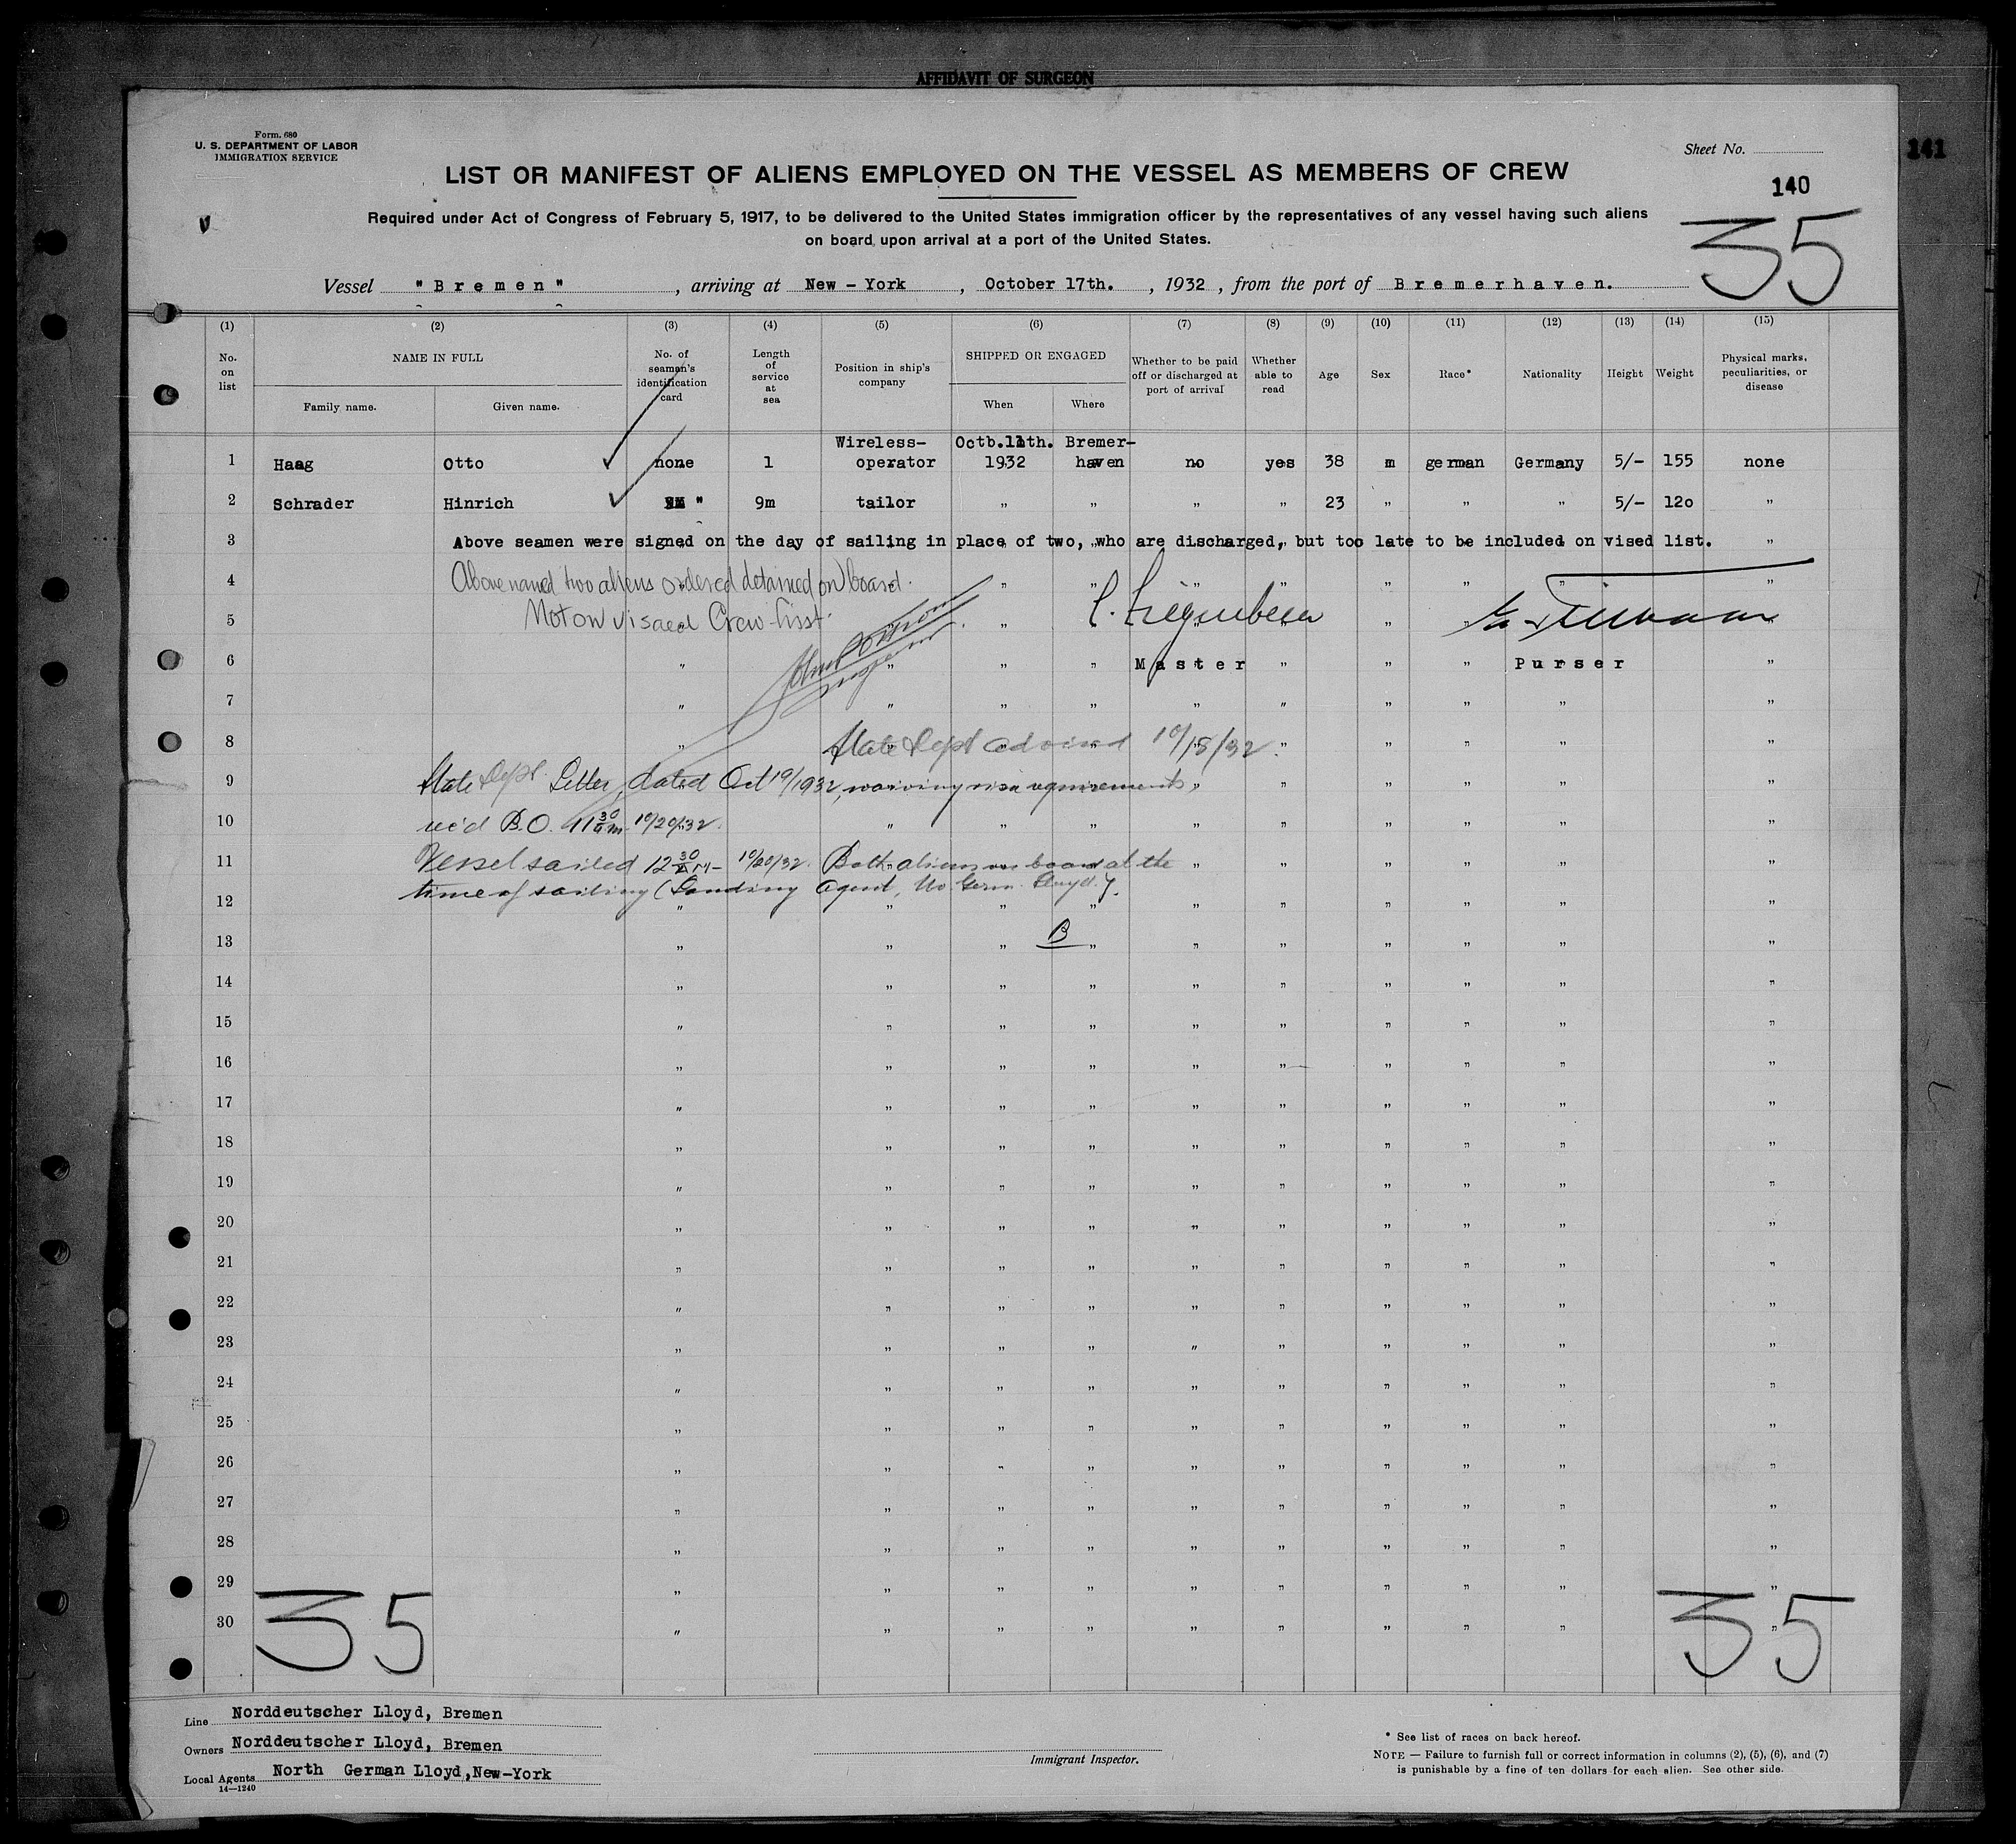 AFFIDAVIT OF SURGEON
Form. 680
U. S. DEPARTMENT OF LABOR
IMMIGRATION SERVICE
Sheet No.
141
140
35
LIST OR MANIFEST OF ALIENS EMPLOYED ON THE VESSEL AS MEMBERS OF CREW
Required under Act of Congress of February 5, 1917, to be delivered to the United States immigration officer by the representatives of any vessel having such aliens
on board upon arrival at a port of the United States.
Vessel "Bremen", arriving at New-York, October 17th., 1932, from the port of Bremerhaven.
(1) (2) (3) (4) (5) (6) (7) (8) (9) (10) (11) (12) (13) (14) (15)
No. on list
NAME IN FULL
Family name. Given name.
No. of seaman's identification card
Length of service at sea
Position in ship's company
SHIPPED OR ENGAGED
When Where
Whether to be paid off or discharged at port of arrival
Whether able to read
Age
Sex
Race*
Nationality
Height
Weight
Physical marks, peculiarities, or disease
Wireless- Octb.11th. Bremer-
1 Haag Otto none 1 operator 1932 haven no yes 38 m german Germany 5/- 155 none
2 Schrader Hinrich " 9m tailor „ „ „ „ 23 „ „ „ 5/- 120 „
3 Above seamen were signed on the day of sailing in place of two, who are discharged, but too late to be included on vised list. „
4 Above named two aliens ordered detained on board.
5 Not on visaed Crew list.
6 Master Purser
7
8 State Dept advised 10/18/32.
9 State Dept. Letter, dated Oct 19/1932, waiving visa requirements,
10 rec'd B.O. 11 30 am 10/20/32.
11 Vessel sailed 12 30 - 10/20/32. Both aliens on board at the
12 time of sailing (Landing Agent, No. Germ. Lloyd).
13 B
14
15
16
17
18
19
20
21
22
23
24
25
26
27
28
29
30
35 35
Line Norddeutscher Lloyd, Bremen
Owners Norddeutscher Lloyd, Bremen
Local Agents North German Lloyd, New-York
14—1240
Immigrant Inspector.
* See list of races on back hereof.
NOTE — Failure to furnish full or correct information in columns (2), (5), (6), and (7)
is punishable by a fine of ten dollars for each alien. See other side.